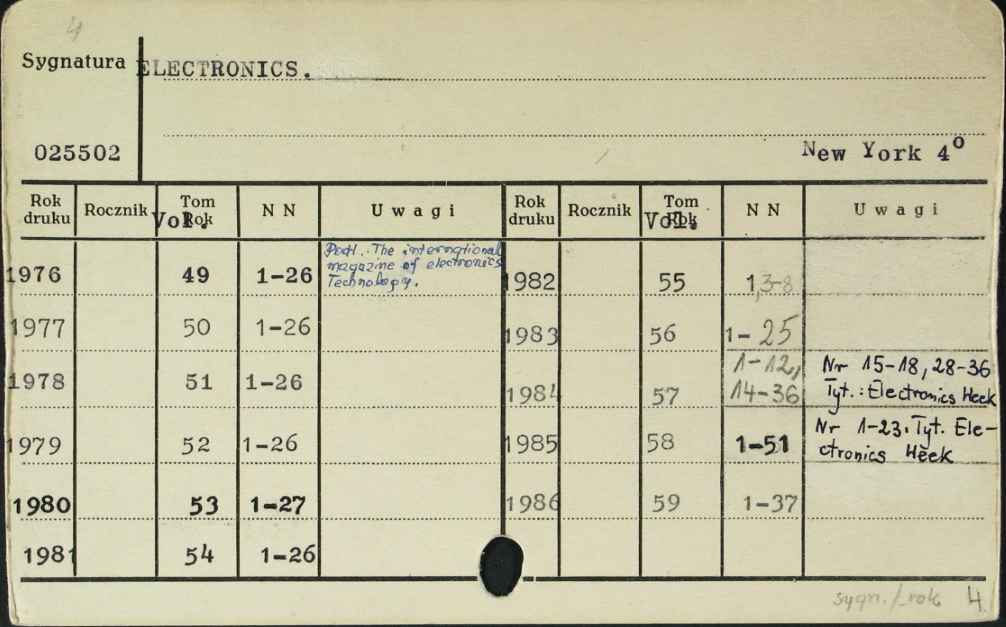 4
Sygnatura ELECTRONICS.
025502
New York 4°
Rok druku Rocznik Tom Rok Vol. N N Uwagi Rok druku Rocznik Tom Rok Vol. N N Uwagi
1976 49 1-26 Podt. The international
magazine of electronics
Technology.
1982 55 1,3-8
1977 50 1-26
1983 56 1-25
1978 51 1-26
1984 57 1-12,
14-36
Nr 15-18, 28-36
Tyt.: Electronics Week
1979 52 1-26
1985 58 1-51 Nr 1-23. Tyt. Ele-
ctronics Week
1980 53 1-27
1986 59 1-37
1981 54 1-26
sygn./rok 4